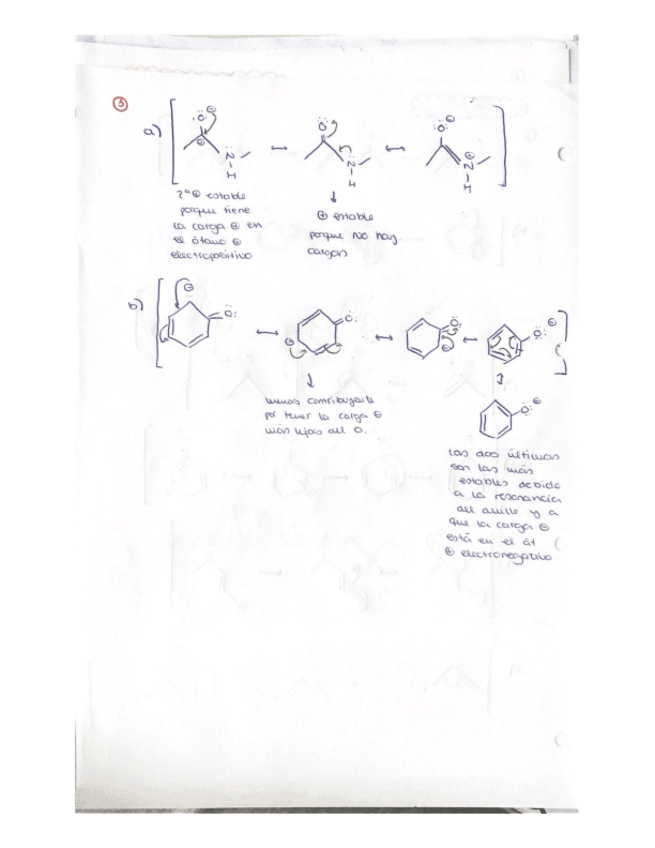 3
a)
2ª ⊕ estable
porque tiene
la carga ⊖ en
el átomo ⊕
electropositivo
⊕ estable
porque no hay
cargas
b)
menos contribuyente
por tener la carga ⊖
más lejos del O.
Las dos últimas
son las más
estables debido
a la resonancia
del anillo y a
que la carga ⊖
está en el át
⊕ electronegativo